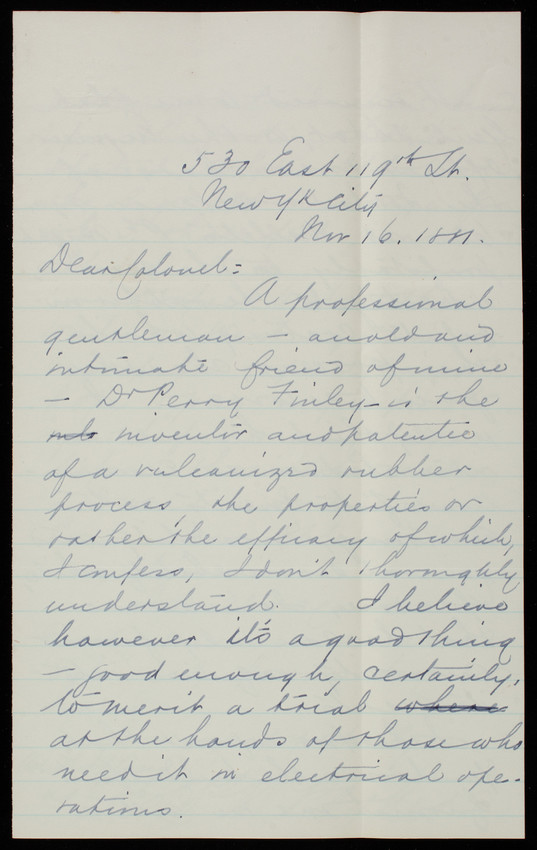 530 East 119th St.
New Yk City
Nov 16. 1881.
Dear Colonel:
A professional
gentleman — an old and
intimate friend of mine
— Dr Perry Finley — is the
inventor and patentee
of a vulcanized rubber
process, the properties or
rather the efficacy of which,
I confess, I don't thoroughly
understand. I believe
however it's a good thing
— good enough, certainly,
to merit a trial where
at the hands of those who
need it in electrical ope-
rations.